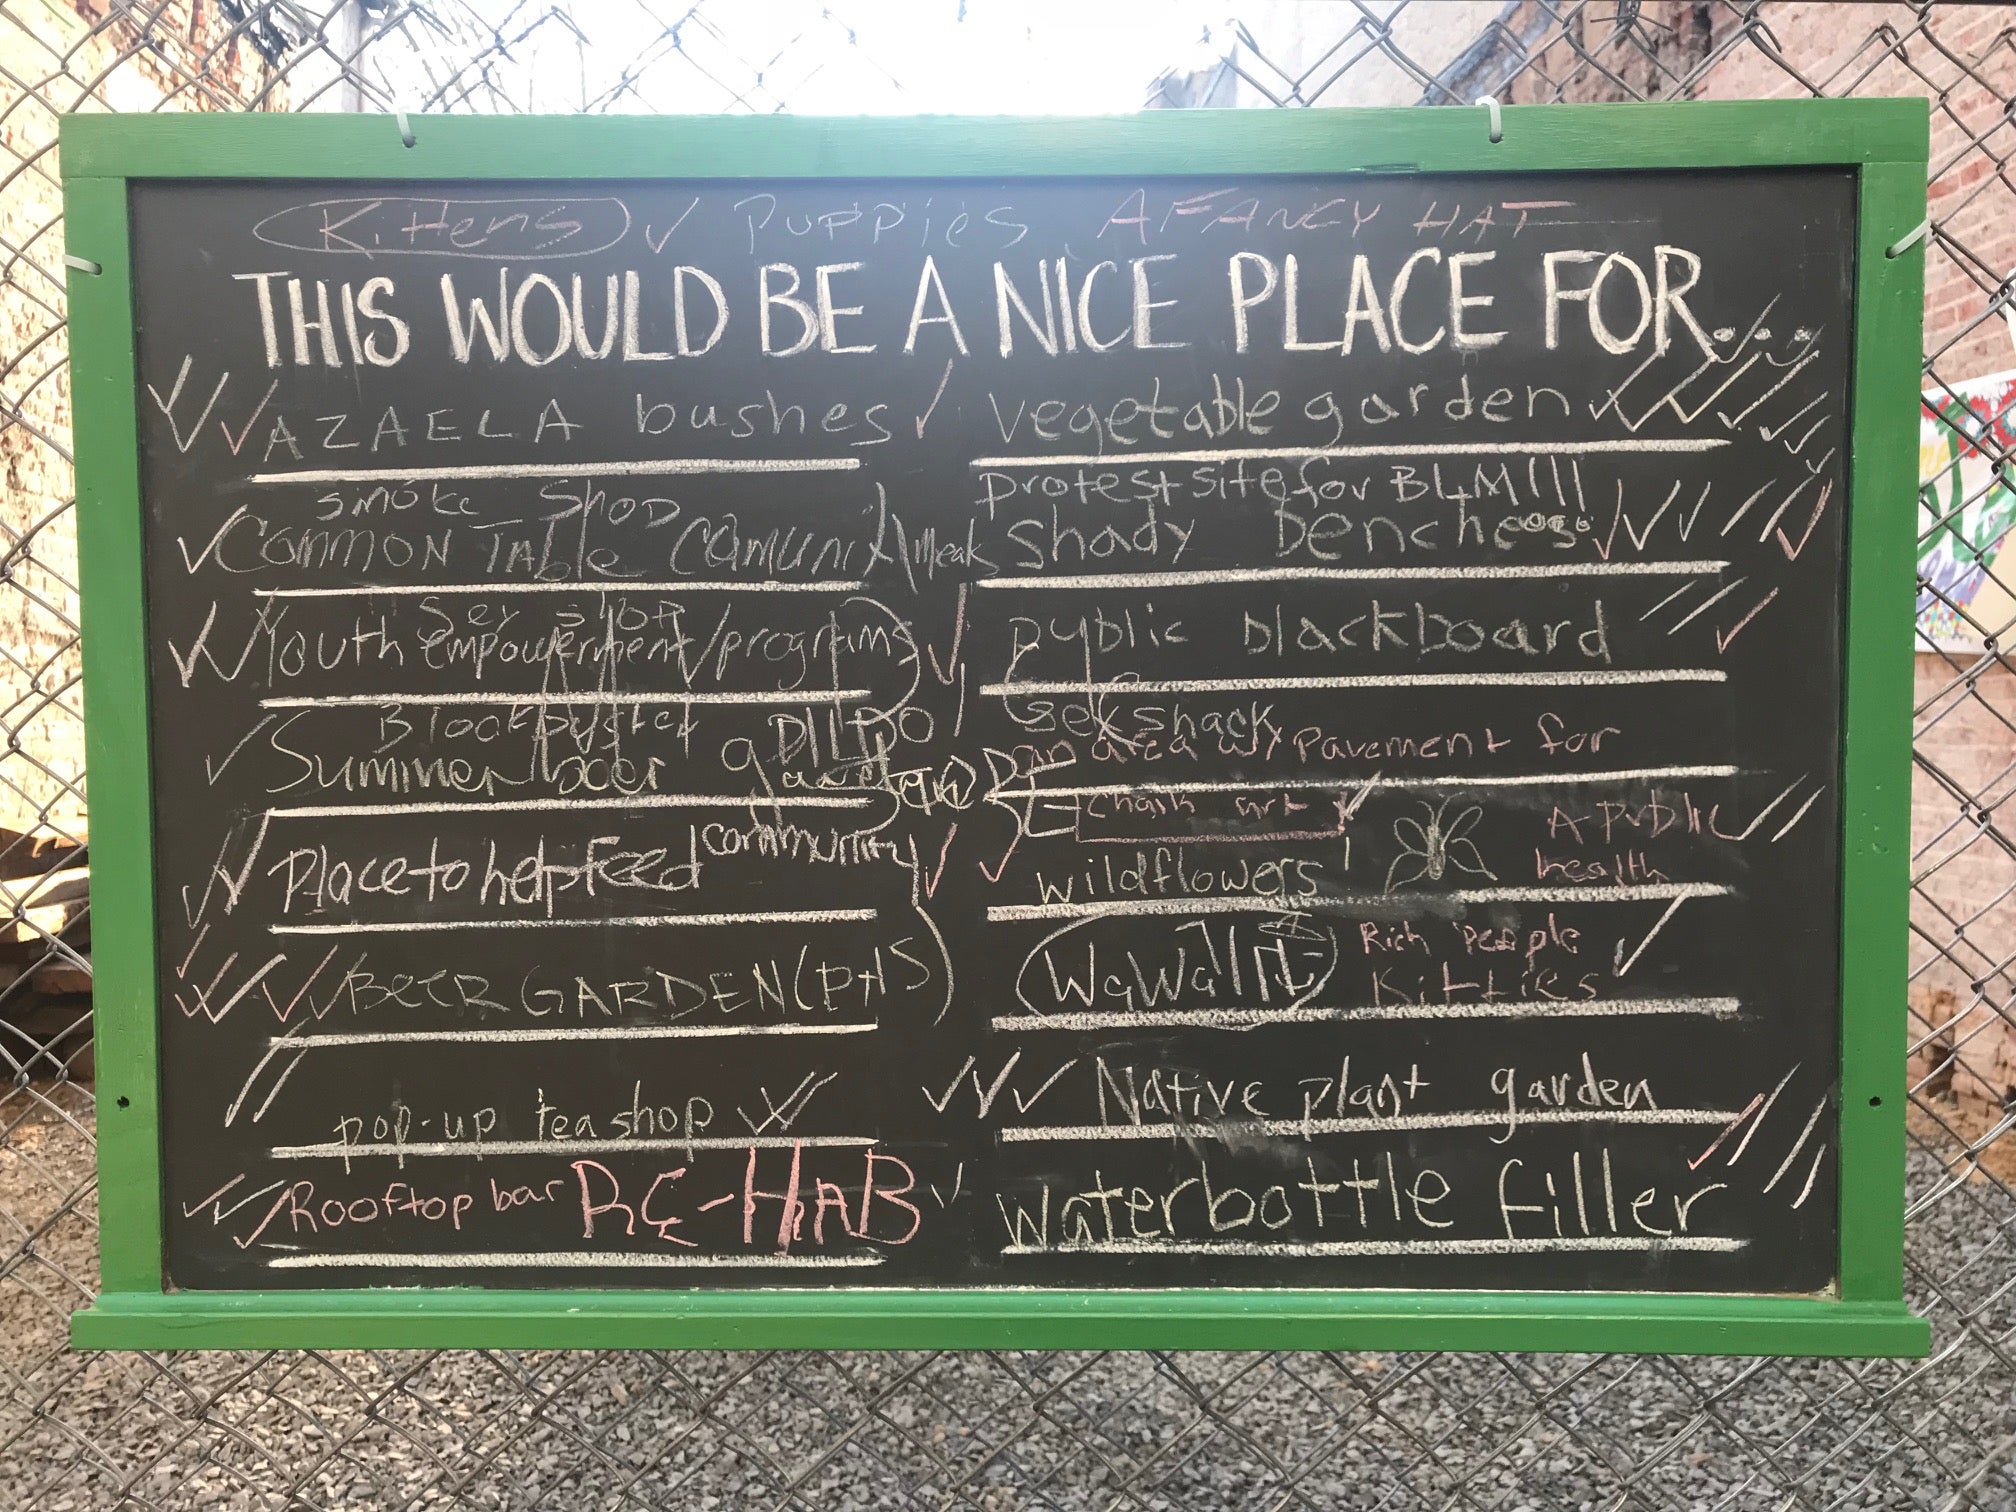 Kittens PUPPiES A FANCY HAT
THIS WOULD BE A NICE PLACE FOR...
AZAELA bushes
Smoke Shop
Common Table
Sex shop
Youth empowerment/programs
Blockbuster DILDO
Summer beer garden
Place to help feed community
BEER GARDEN (PHS)
pop-up tea shop
Rooftop bar RE-HAB
vegetable garden
protest site for BLM!!!
Shady benches
public blackboard
Sex shack
an area w/ pavement for
Chalk art
A public
wildflowers
health
WaWa! Rich people
Kitties
Native plant garden
Waterbottle filler